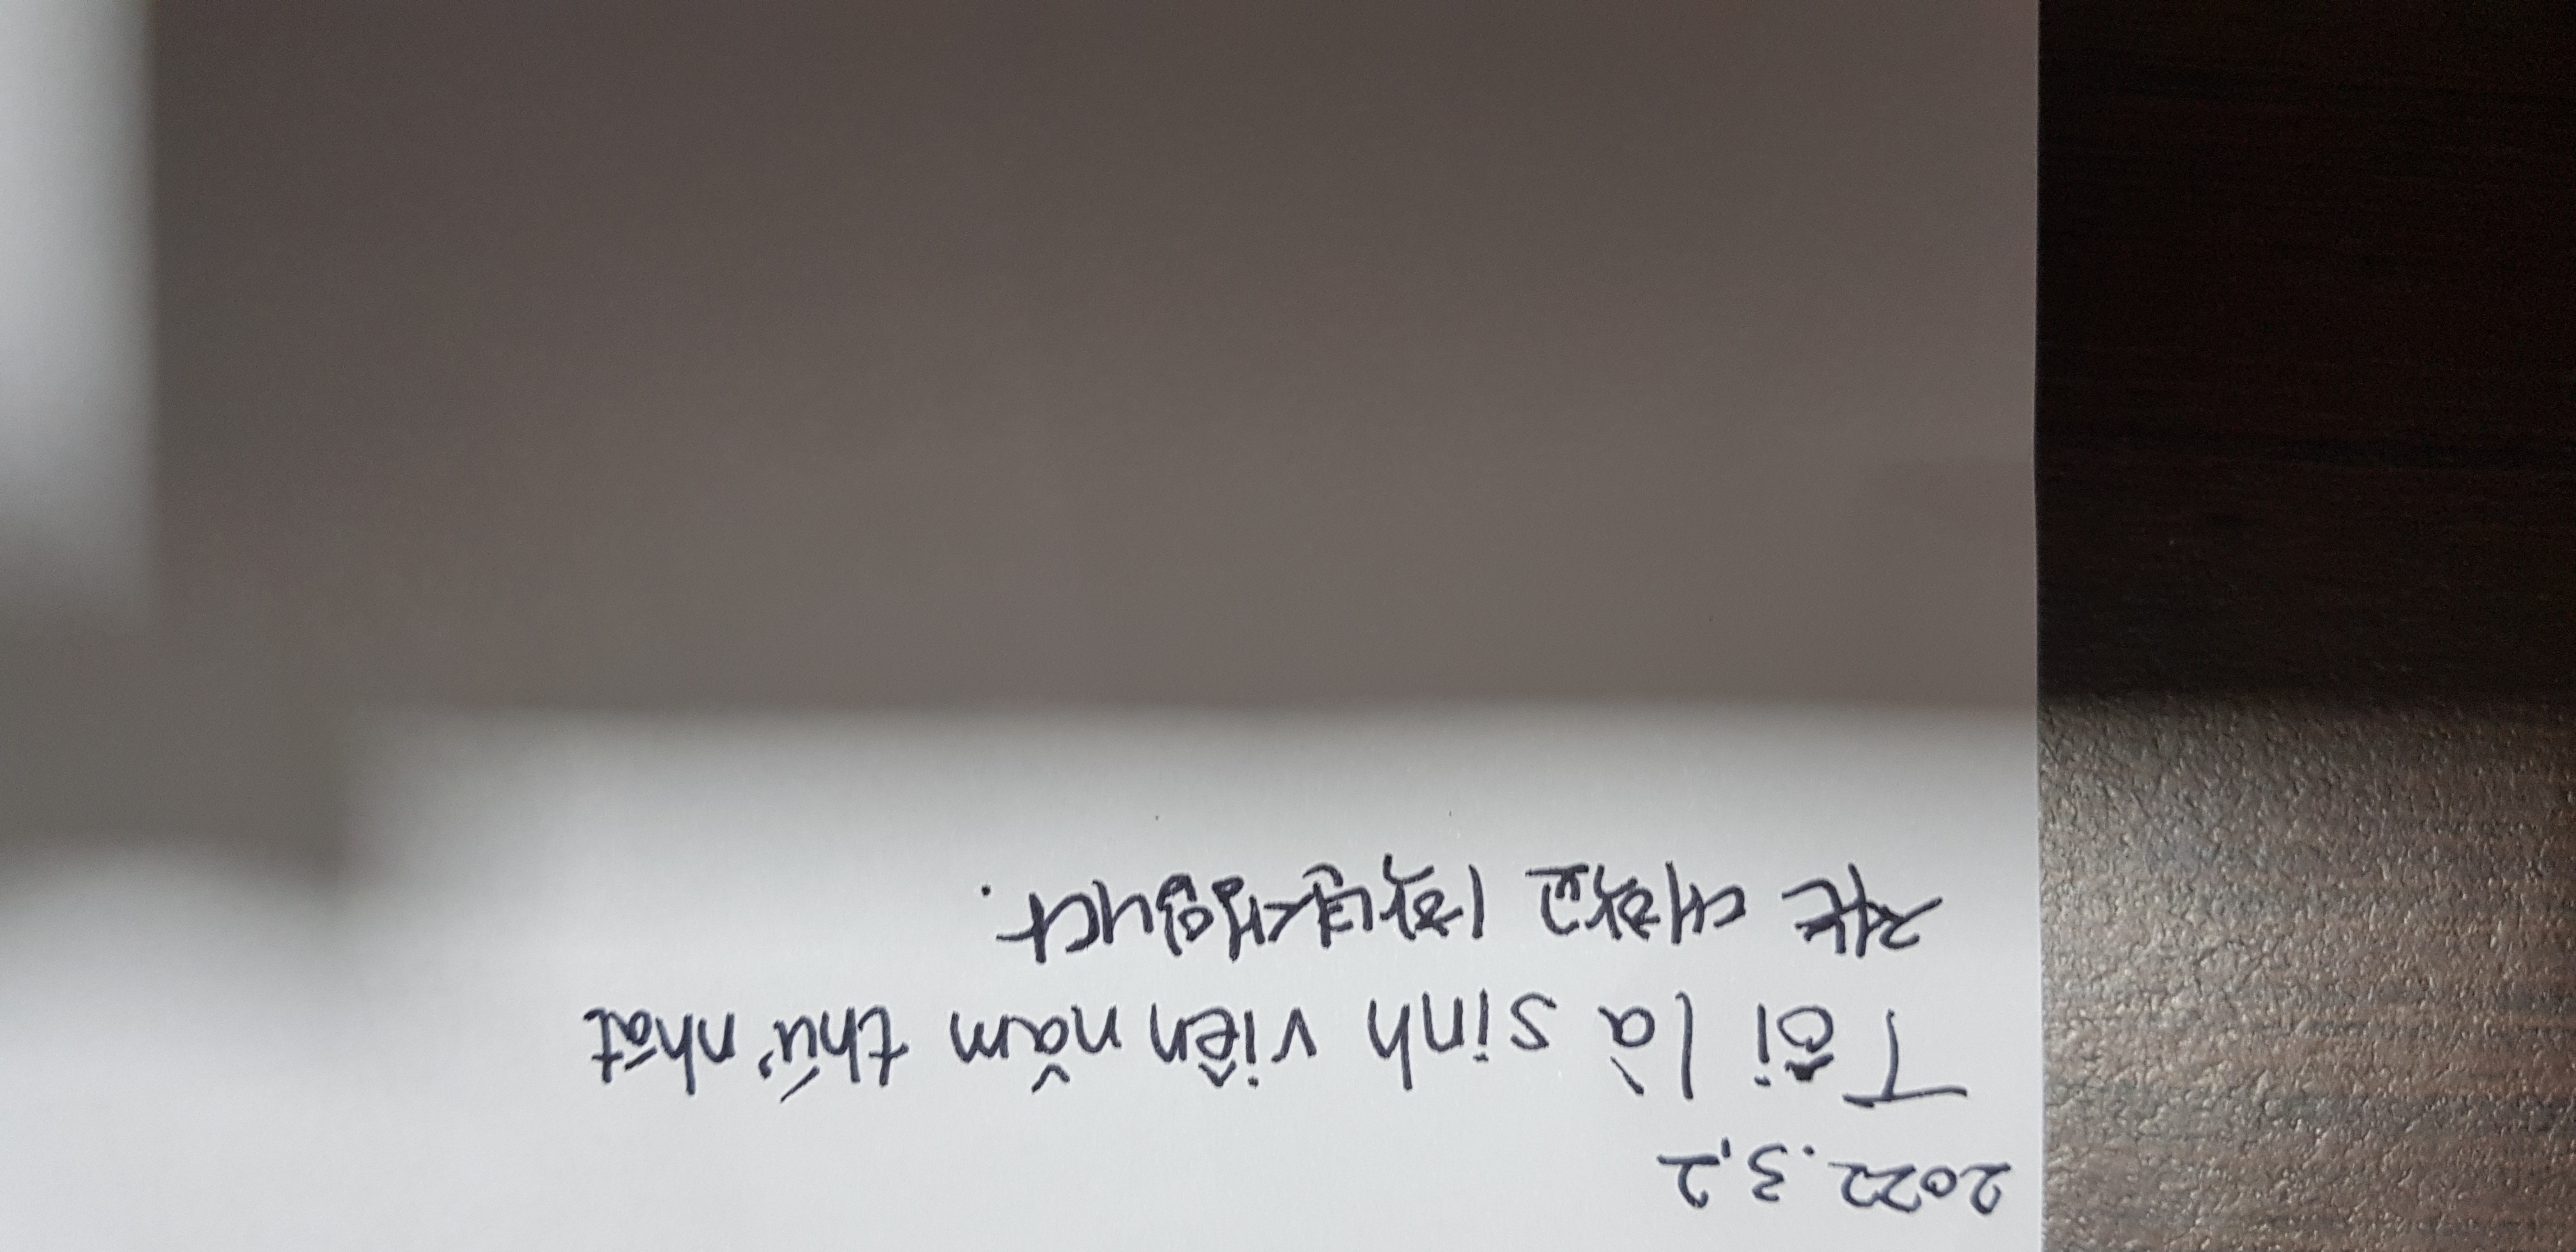 2022.3.2
Tôi là sinh viên năm thứ nhất
저는 대학교 1학년생입니다.